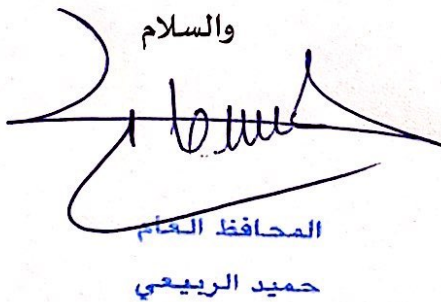 والسلام
المحافظ العام
حميد الربيعي